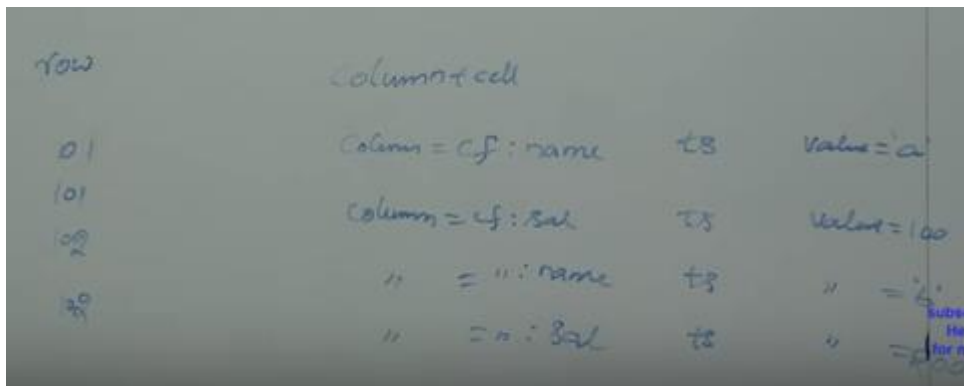 row
Column + cell
101 Column = cf : name ts value = 'a'
101 Column = cf : sal ts value = 100
102 " = " : name ts " = 'b'
" = " : sal ts "
subs
He
for m